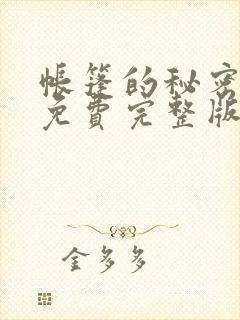 帐篷的秘密
免费完整版
金多多